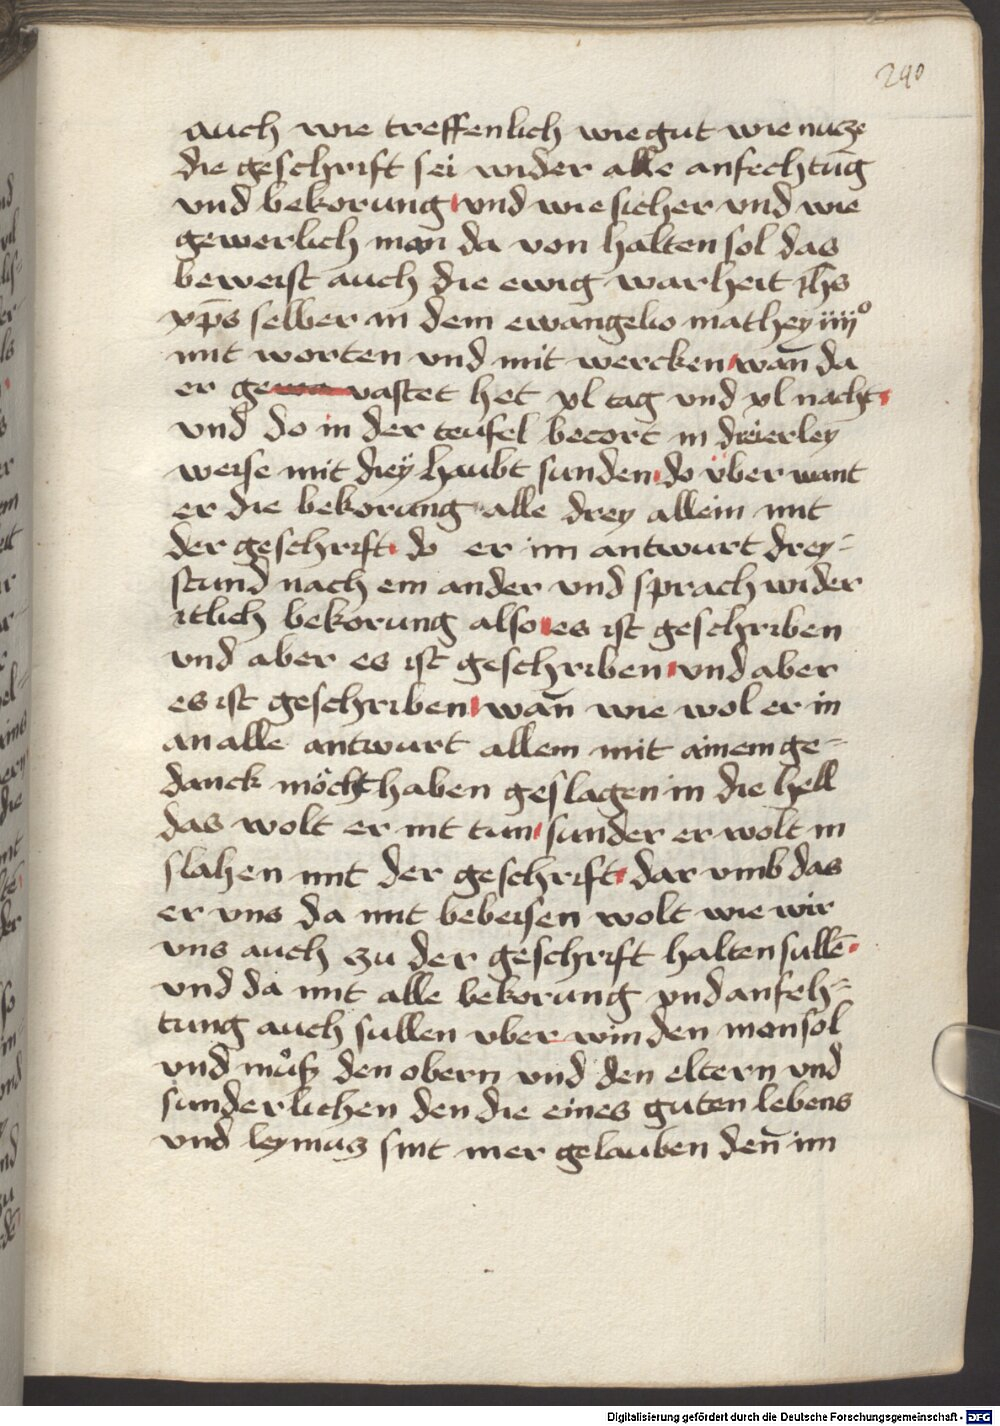 290
auch wie treffenlich wie gut wie nucze
die geschrift sei wider alle anfechtũg
vnd bekorung vnd wie sicher vnd wie
gewerlich man da von halten sol das
beweist auch die ewig warheit ih̅s
xp̅s selber in dem ewangelio mathey iiijº
mit worten vnd mit wercken wan̅ da
er ge vastet het xl tag vnd xl nacht
vnd do in der teufel becort in dreierley
weise mit dreÿ haubt sunden do vber want
er die bekorung alle drey allein mit
der geschrift do er im antwurt drey=
stund nach ein ander vnd sprach wider
itlich bekorung also es ist geschriben
vnd aber es ist geschriben vnd aber
es ist geschriben wan̅ wie wol er in
an alle antwurt allein mit ainem ge=
danck möcht haben geslagen in die hell
das wolt er nit tun sunder er wolt in
slahen mit der geschrift dar vmb das
er vns da mit bebeisen wolt wie wir
vns auch zu der geschrift halten sullē
vnd da mit alle bekorung vnd anfeh=
tung auch sullen vber winden man sol
vnd muͦß den obern vnd den eltern vnd
sunderlichen den die eines guten lebens
vnd leymuz sint mer gelauben den̅ im
Digitalisierung gefördert durch die Deutsche Forschungsgemeinschaft - DFG